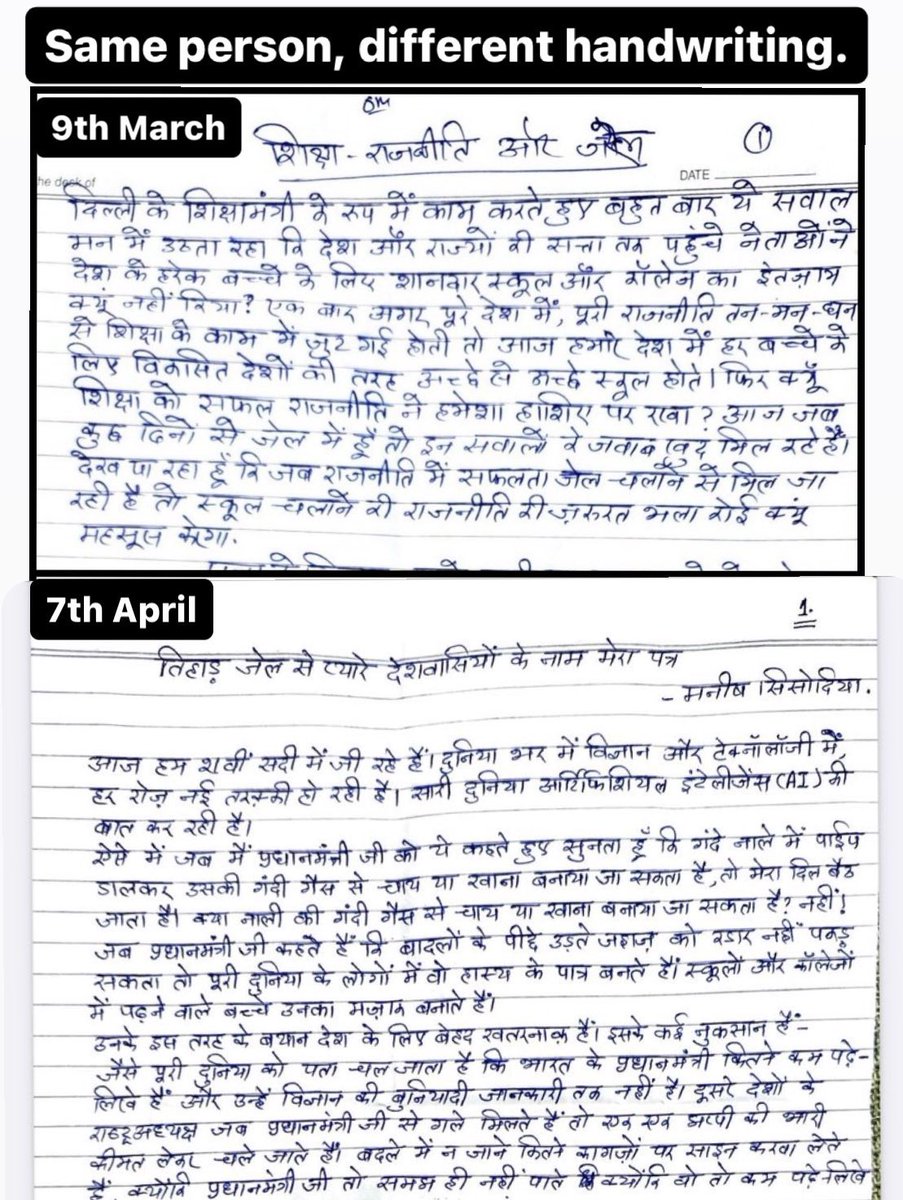 Same person, different handwriting.
9th March
ॐ
शिक्षा - राजनीति और जेल
①
the desk of
DATE
दिल्ली के शिक्षामंत्री के रूप में काम करते हुए बहुत बार ये सवाल
मन में उठता रहा कि देश और राज्यों की सत्ता तक पहुंचे नेताओं ने
देश के हरेक बच्चे के लिए शानदार स्कूल और कॉलेज का इंतज़ाम
क्यूं नहीं किया? एक बार अगर पूरे देश में, पूरी राजनीति तन-मन-धन
से शिक्षा के काम में जुट गई होती तो आज हमारे देश में हर बच्चे के
लिए विकसित देशों की तरह अच्छे से अच्छे स्कूल होते। फिर क्यूँ
शिक्षा को सफल राजनीति ने हमेशा हाशिए पर रखा? आज जब
कुछ दिनों से जेल में हूँ तो इन सवालों के जवाब खुद मिल रहे हैं।
देख पा रहा हूँ कि जब राजनीति में सफलता जेल चलाने से मिल जा
रही है तो स्कूल चलाने की राजनीति की ज़रुरत भला कोई क्यूं
महसूस करेगा.
7th April
1.
तिहाड़ जेल से प्यारे देशवासियों के नाम मेरा पत्र
- मनीष सिसोदिया.
आज हम 21वीं सदी में जी रहे हैं। दुनिया भर में विज्ञान और टेक्नॉलॉजी में,
हर रोज़ नई तरक़्क़ी हो रही है। सारी दुनिया आर्टिफिशियल इंटेलीजेंस (AI) की
बात कर रही है।
ऐसे में जब मैं प्रधानमंत्री जी को ये कहते हुए सुनता हूँ कि गंदे नाले में पाईप
डालकर उसकी गंदी गैस से चाय या खाना बनाया जा सकता है, तो मेरा दिल बैठ
जाता है। क्या नाली की गंदी गैस से चाय या खाना बनाया जा सकता है? नहीं!
जब प्रधानमंत्री जी कहते हैं कि बादलों के पीछे उड़ते जहाज़ को रडार नहीं पकड़
सकता तो पूरी दुनिया के लोगों में वो हास्य के पात्र बनते हैं। स्कूलों और कॉलेजों
में पढ़ने वाले बच्चे उनका मज़ाक बनाते हैं।
उनके इस तरह के बयान देश के लिए बेहद खतरनाक हैं। इसके कई नुकसान हैं-
जैसे पूरी दुनिया को पता चल जाता है कि भारत के प्रधानमंत्री कितने कम पढ़े-
लिखे हैं और उन्हें विज्ञान की बुनियादी जानकारी तक नहीं है। दूसरे देशों के
राष्ट्रअध्यक्ष जब प्रधानमंत्री जी से गले मिलते हैं तो एक एक झप्पी की भारी
कीमत लेकर चले जाते हैं। बदले में न जाने कितने कागज़ों पर साइन करवा लेते
हैं, क्योंकि प्रधानमंत्री जी तो समझ ही नहीं पाते क्योंकि वो तो कम पढ़े लिखे